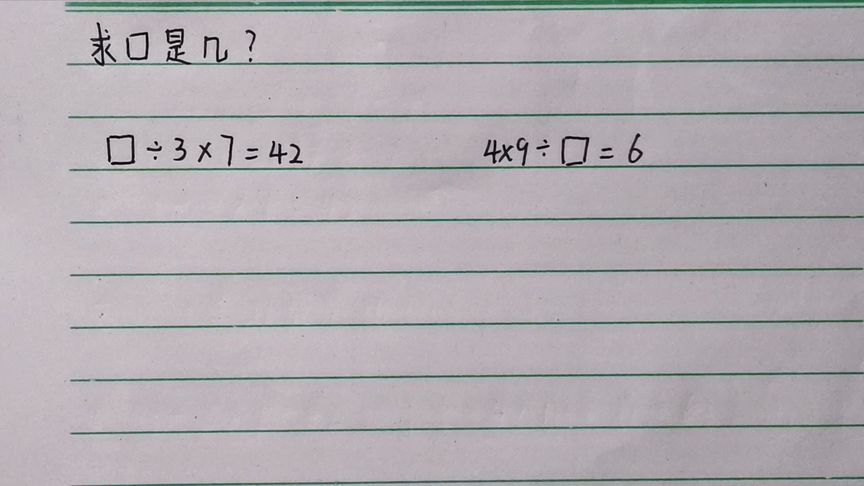 求□是几？
□÷3×7=42
4×9÷□=6